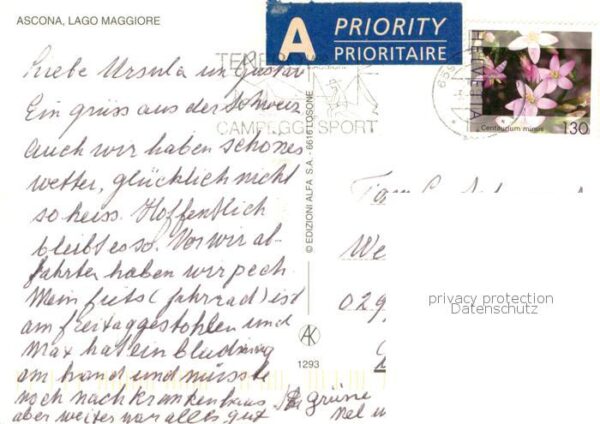 ASCONA, LAGO MAGGIORE
A PRIORITY
PRIORITAIRE
HELVETIA
Centaurium minus
130
TENE
CAMPEGGI SPORT
Liebe Ursula un Gustav
Ein grüss aus der Schweiz
Auch wir haben schönes
wetter, glücklich nicht
so heiss. Hoffentlich
bleibt es so. Vor wir ab-
fahrten haben wir pech.
Mein fiets (fahrrad) ist
am freitag gestohlen und
Max hat ein
am hand und müsste
noch nach krankenhaus.
aber weiter war alles gut
grüne
© EDIZIONI ALFA S.A. - 6616 LOSONE
AK
1293
We
029
privacy protection
Datenschutz